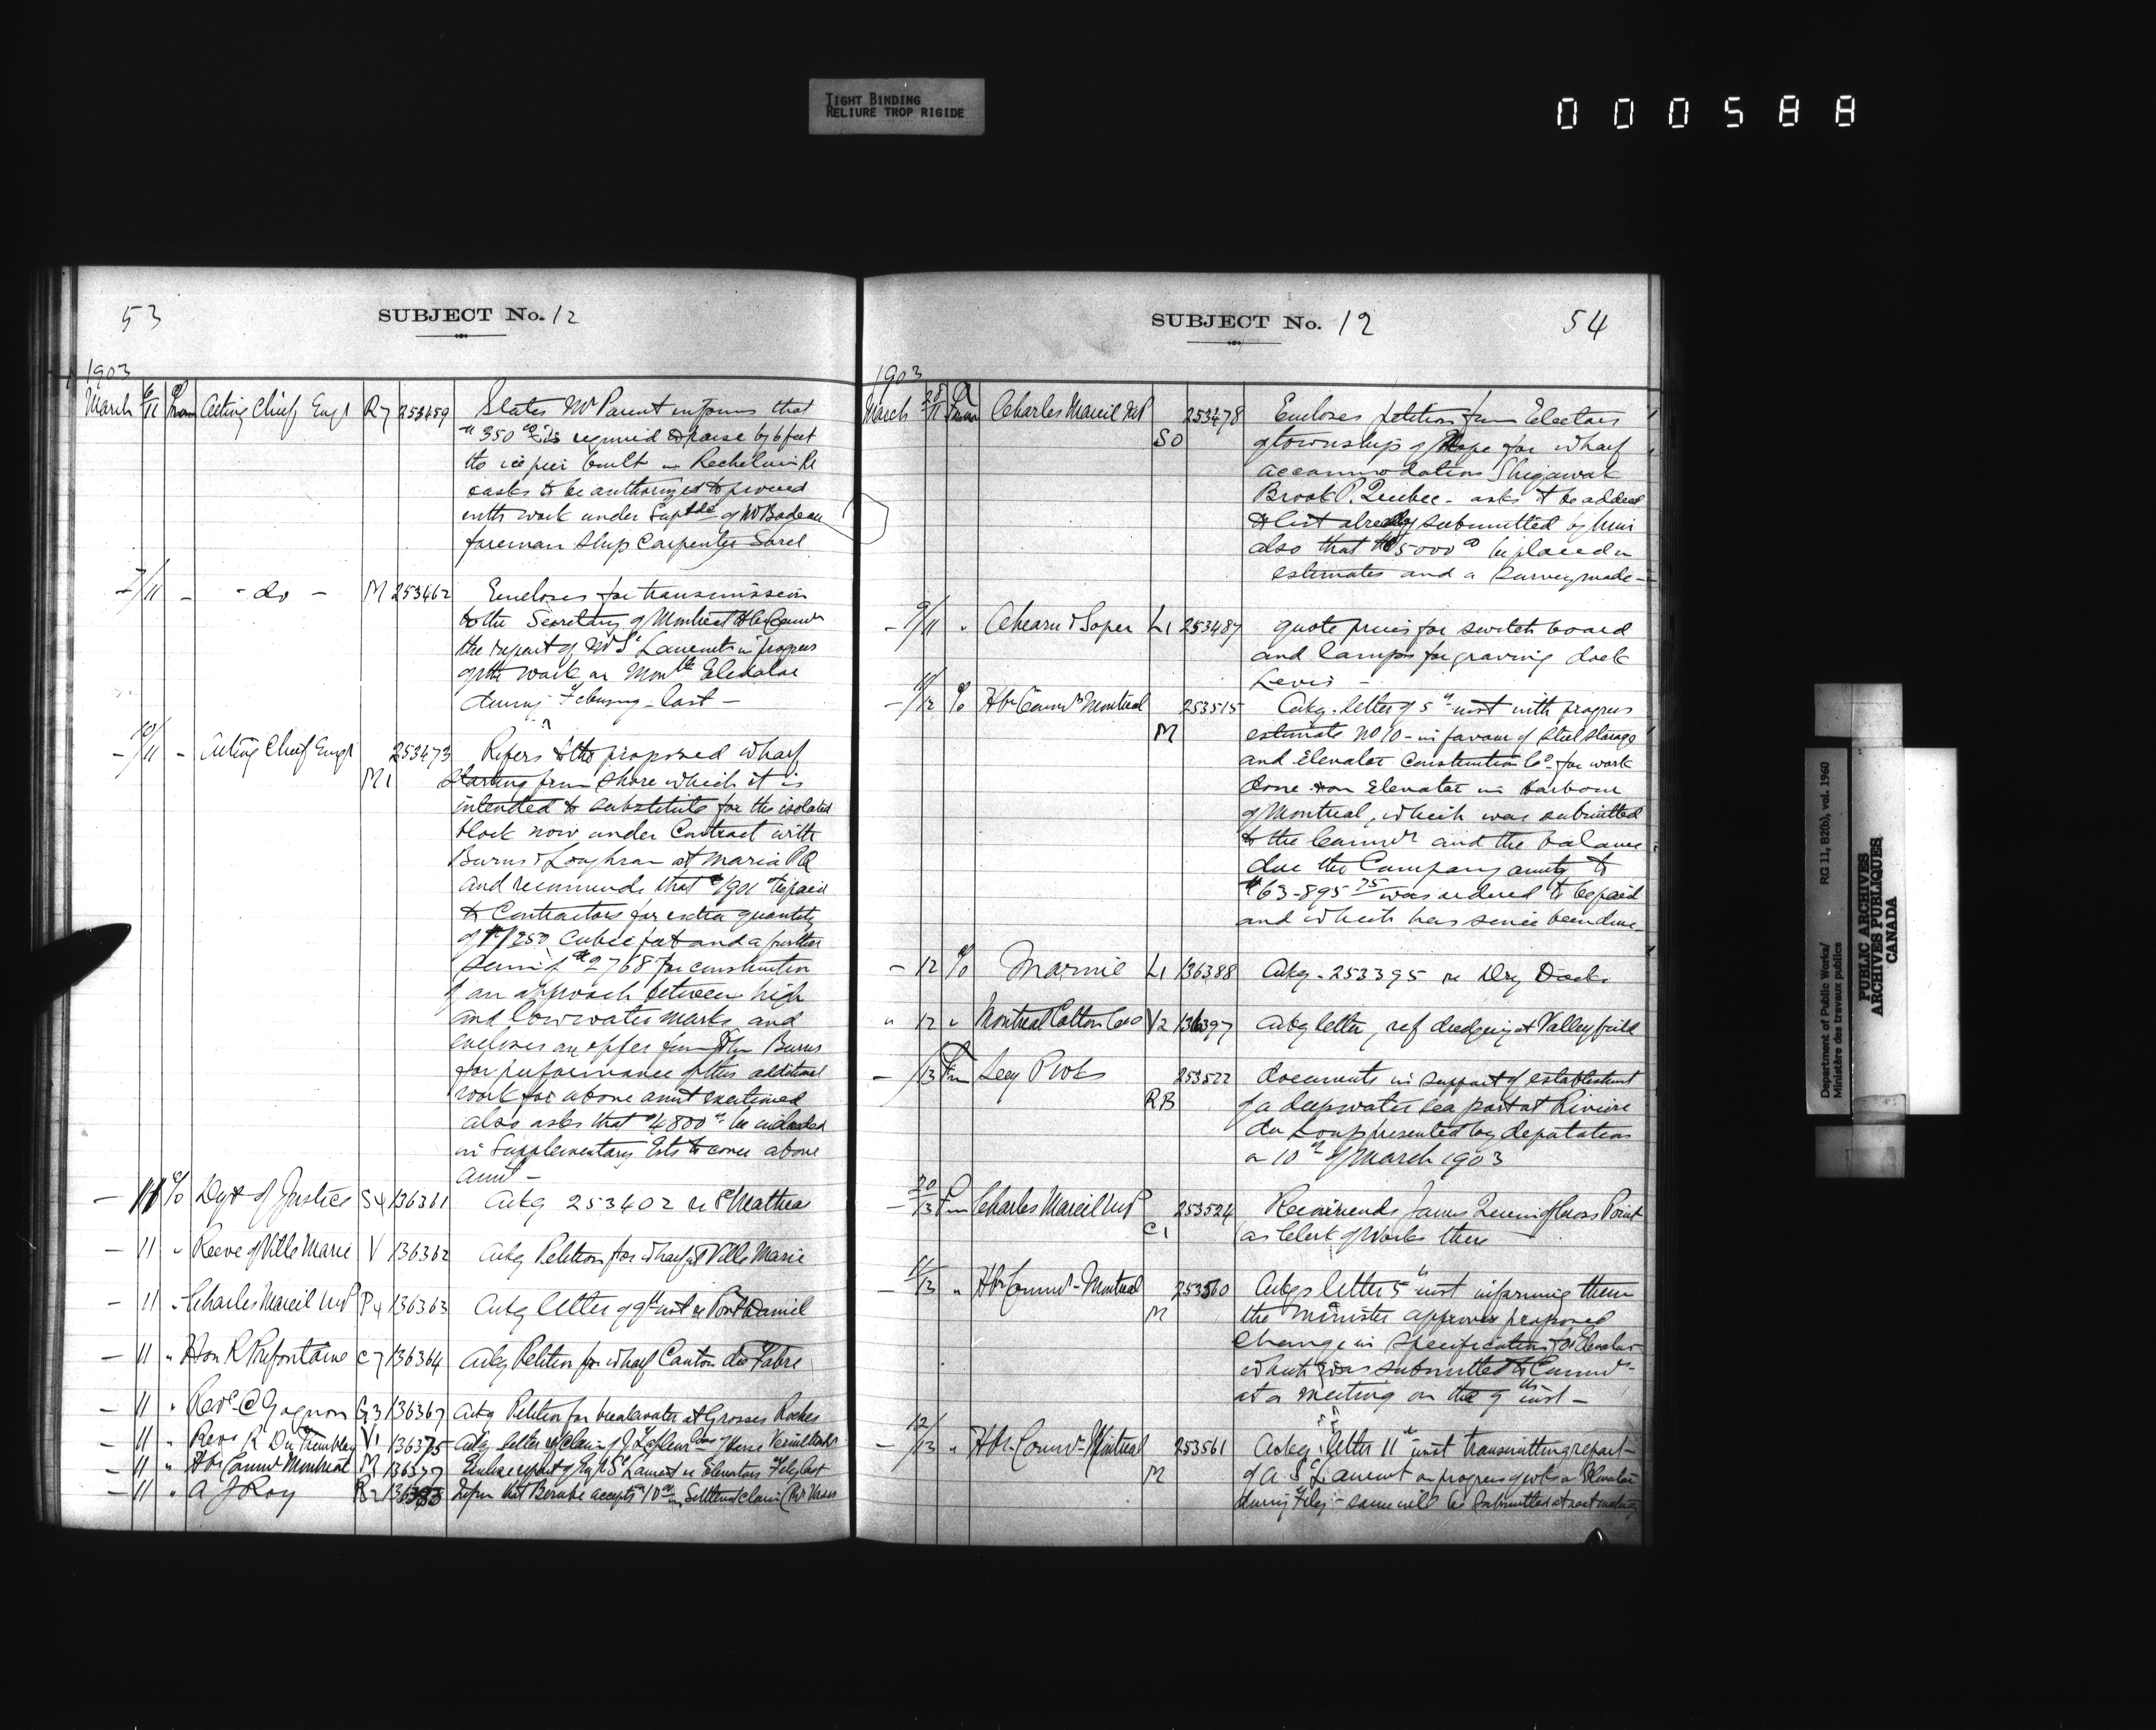 TIGHT BINDING
RELIURE TROP RIGIDE
000588
53
SUBJECT No. 12
1903
March 6/11 From Acting Chief Engr R7 253459 States Mr Parent informs that
$350 00 is required to raise by 6 feet
the ice pier built in Richelieu R
& asks to be authorized to proceed
with work under Suptdce of Mr Badeau
foreman Ship Carpenter Sorel
- 7/11 - - do - M 253462 Encloses for transmission
to the Secretary of Montreal Hbr Comrs
the report of Mr St Laurent in progress
of the work on Elevator
during February last -
- 10/11 - Acting Chief Engr 253473 Refers to the proposed wharf
M1 starting from shore which it is
intended to substitute for the isolated
block now under Contract with
Burns & Loughran at Maria PQ
and recommends that be paid
to Contractors for extra quantity
of cubic feet and a further
sum of $2768 for construction
of an approach between high
and low water marks and
encloses an offer from John Burns
for performance of this additional
work for above amt mentioned
also asks that $4800 00 be included
in Supplementary Ests to cover above
amt -
- 11 % Dept of Justice S4 136361 Ackg 253402 re Mathieu
- 11 " Reeve of Ville Marie V 136362 Ackg Petition for wharf at Ville Marie
- 11 " Charles Marcil MP P4 136363 Ackg letter of 9th inst re Port Daniel
- 11 " Hon R Prefontaine C7 136364 Ackg Petition for wharf Canton Fabre
- 11 " Revd C Gagnon G3 136367 Ackg Petition for breakwater at Grosses Roches
- 11 " Revd Tremblay V1 136375 Ackg letter claim of J Lafleur
- 11 " Hbr Comrs Montreal M 136377 Enclose report of St Laurent re Elevators Feby last
- 11 " A J Roy R2 136383 Inform that Berube accepts in Settlement claim
SUBJECT No. 12
54
1903
March 28/11 From Charles Marcil MP 253478 Encloses petition from Electors
SO of township of Hope for wharf
accommodation Shigawak
Brook P. Quebec - asks to be added
to list already submitted by him
also that $5000 00 be placed in
estimates and a survey made -
- 9/11 " Ahearn & Soper L1 253487 quote prices for switch board
and lamps for graving dock
Levis -
- 11/12 % Hbr Comrs Montreal 253515 Ackg. letter of 5th inst with progress
M estimate No 10 - in favour of Steel Storage
and Elevator Construction Co. for work
done on Elevator in Harbour
of Montreal, which was submitted
to the Comrs and the balance
due the Company amtg to
$63-895 75 was ordered to be paid
and which has since been done -
- 12 % Marine L1 136388 Ackg. 253395 re Dry Docks
" 12 " Montreal Cotton Coo V2 136397 Ackg letter, ref dredging at Valleyfield
- /13 Fm 253522 documents in support of establishment
RB of a deepwater sea port at Riviere
du Loup presented by deputation
on 10th of March 1903
- 20/13 Fm Charles Marcil MP 253524 Recommends James of Cross Point
C1 as Clerk of Works there
- 11/13 " Hbr Comrs - Montreal 253560 Ackgs letter 5th inst informing them
M the Minister approves proposed
change in specification for Elevator
which was submitted to Comrs
at a meeting on the 9th inst -
- 12/13 " Hbr Comrs - Montreal 253561 Ackg letter 11th inst transmitting report
M of A. St Laurent on progress of wks on Elevator
during Feby - same will be submitted at next meeting
Department of Public Works/
Ministère des travaux publics
RG 11, B2(b), vol. 1960
PUBLIC ARCHIVES
ARCHIVES PUBLIQUES
CANADA